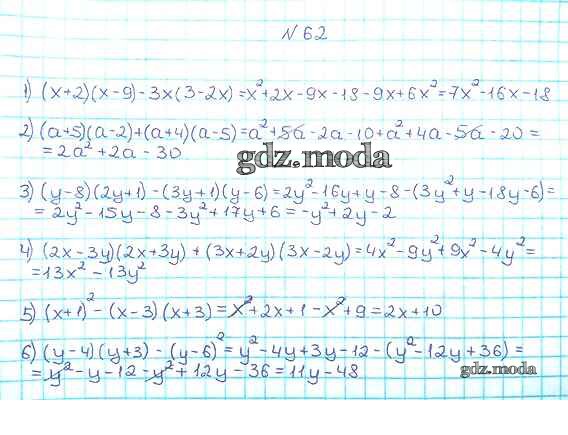 № 62
1) (x+2)(x-9)-3x(3-2x)=x²+2x-9x-18-9x+6x²=7x²-16x-18
2) (a+5)(a-2)+(a+4)(a-5)=a²+5a-2a-10+a²+4a-5a-20=
=2a²+2a-30
gdz.moda
3) (y-8)(2y+1)-(3y+1)(y-6)=2y²-16y+y-8-(3y²+y-18y-6)=
=2y²-15y-8-3y²+17y+6=-y²+2y-2
4) (2x-3y)(2x+3y)+(3x+2y)(3x-2y)=4x²-9y²+9x²-4y²=
=13x²-13y²
5) (x+1)²-(x-3)(x+3)=x²+2x+1-x²+9=2x+10
6) (y-4)(y+3)-(y-6)²=y²-4y+3y-12-(y²-12y+36)=
=y²-y-12-y²+12y-36=11y-48
gdz.moda